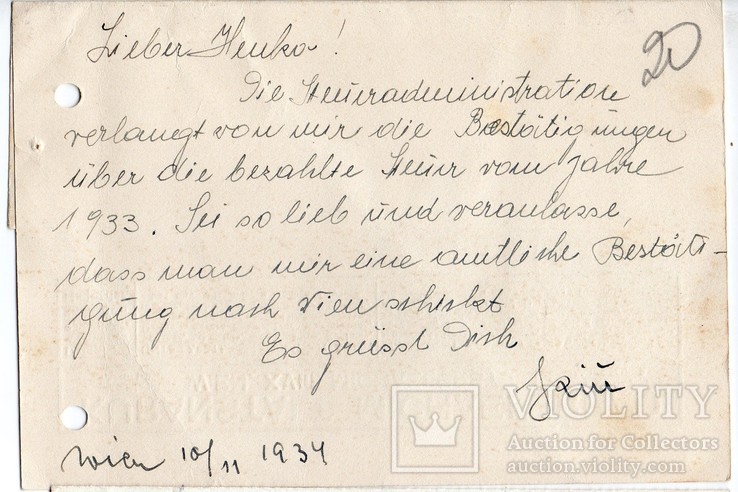 Lieber Henko!
20
Die Steueradministration
verlangt von mir die Bestätigungen
über die bezahlte Steuer vom Jahre
1933. Sei so lieb und veranlasse,
dass man mir eine amtliche Bestäti-
gung nach Wien schickt
Es grüsst Dich
Wien 10/11 1934
VIOLITY
Auction for Collectors
auction.violity.com